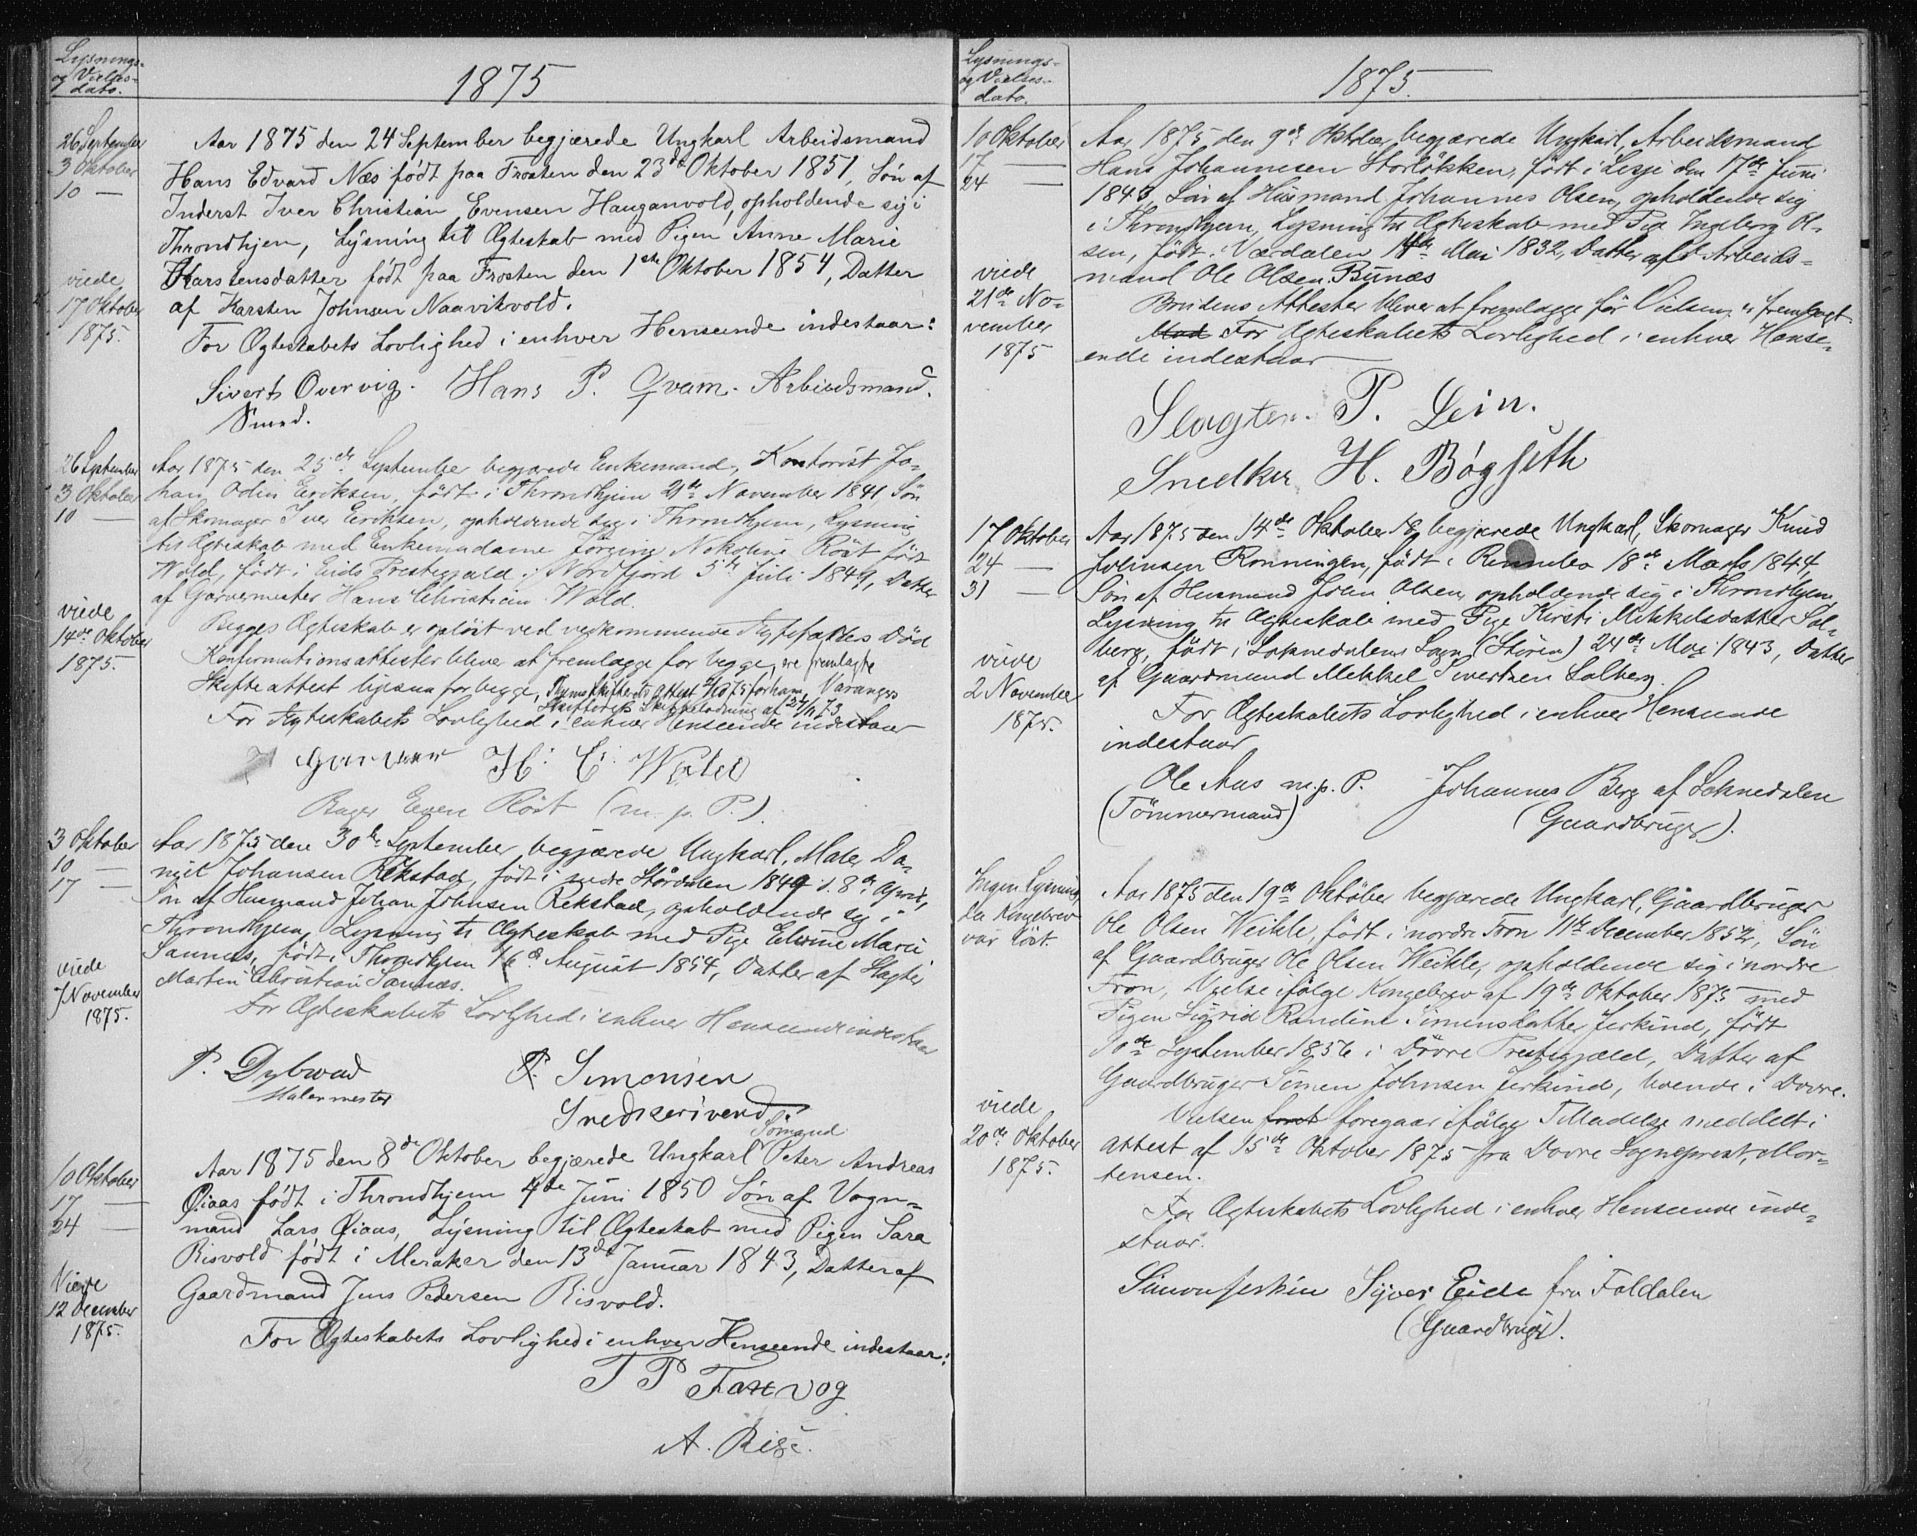 Lysnings-
og Vielses-
dato.
1875
26 September
3 Oktober
10 —
viede
17 Oktober
1875.
Aar 1875 den 24 September begjærede Ungkarl Arbeidsmand
Hans Edvard Næs født paa Frosten den 23de Oktober 1851, Søn af
Inderst Iver Christian Evensen Hauganvold, opholdende sig i
Throndhjem, Lysning til Ægteskab med Pigen Anne Marie
Karstensdatter født paa Frosten den 1ste Oktober 1854, Datter
af Karsten Johnsen Naavikvold.
For Ægteskabets Lovlighed i enhver Henseende indestaar:
Sivert Overvig. Hans P. Qvam. Arbeidsmand.
Smed.
26 September
3 Oktober
10 —
viede
14de Oktober
1875.
Aar 1875 den 25de September begjærede Enkemand, Kontorist Jo-
han Odin Eriksen, født i Throndhjem 21de November 1841 Søn
af Skomager Iver Eriksen, opholdende sig i Throndhjem, Lysning
til Ægteskab med Enkemadame Jørgine Nikoline Röst født
Wold, født i Eids Prestegjæld i Nordfjord 5te Juli 1849, Datter
af Garvermester Hans Christian Wold.
Begges Ægteskab er opløst ved vedkommende Ægtefælles Død
Konfirmationsattester bliver at fremlægge for begge, ere fremlagte
Skifteattest ligesaa for begge, attest for ham, Varanger
af 27/11 73
For Ægteskabets Lovlighed i enhver Henseende indestaar
Garver H. C. Wold
Bager Even Röst (m. p. P.).
3 Oktober
10 —
17 —
viede
7 November
1875.
Aar 1875 den 30te September begjærede Ungkarl, Maler Da-
niel Johansen Rekstad, født i nedre Stördalen 1849 d. 8de April,
Søn af Husmand Johan Johnsen Rekstad, opholdende sig i
Throndhjem, Lysning til Ægteskab med Pige Elvine Marie
Sannæs, født i Throndhjem 16de August 1854, Datter af Slagter
Martin Christian Sannæs.
For Ægteskabets Lovlighed i enhver Henseende indestaar
P. Dybwad P. Simonsen
Malermester
Snedkersvend
10 Oktober
17 —
24 —
Viede
12 December
1875.
Sømand
Aar 1875 den 8de Oktober begjærede Ungkarl Peter Andreas
Qiaas født i Throndhjem 4de Juni 1850 Søn af Vogn-
mand Lars Qiaas, Lysning til Ægteskab med Pigen Sara
Risvold født i Meraker den 13de Januar 1843, Datter af
Gaardmand Jens Pedersen Risvold.
For Ægteskabets Lovlighed i enhver Henseende indestaar:
T P Fanvog
A. Rise.
Lysnings-
og Vielses-
dato.
1875.
10 Oktober
17 —
24 —
viede
21de No-
vember
1875
Aar 1875 den 9de Oktober begjærede Ungkarl, Arbeidsmand
Hans Johannesen Storløkken, født i Lesje den 17de Juni
1845, Søn af Husmand Johannes Olsen, opholdende sig
i Throndhjem, Lysning til Ægteskab med Pige Ingeborg Ol-
sen, født i Værdalen 4de Mai 1832, Datter af Arbeids-
mand Ole Olsen Bunæs
Brudens Attester bliver at fremlægge før Vielsen, er fremlagt
Mod For Ægteskabets Lovlighed i enhver Hense-
ende indestaar
Slagter P. Lein.
Snedker H. Bøgseth
17 Oktober
24 —
31 —
viede
2 November
1875.
Aar 1875 den 14de Oktober begjærede Ungkarl, Skomager Knud
Johnsen Rønningen, født i Rennebo 18de Marts 1844,
Søn af Husmand John Olsen, opholdende sig i Throndhjem,
Lysning til Ægteskab med Pige Kirsti Mikkelsdatter Sol-
berg, født i Soknedalens Sogn (Stören) 24de Mai 1843, Datter
af Gaardmand Mikkel Sivertsen Solberg.
For Ægteskabets Lovlighed i enhver Henseende
indestaar
Ole Aas m.p. P. Johannes Berg af Soknedalen
(Tømmermand) (Gaardbruger).
Ingen Lysning,
da Kongebrev
var løst.
viede
20de Oktober
1875.
Aar 1875 den 19de Oktober begjærede Ungkarl, Gaardbruger
Ole Olsen Weikle, født i nordre Fron 11te December 1852, Søn
af Gaardbruger Ole Olsen Weikle, opholdende sig i nordre
Fron, Vielse ifølge Kongebrev af 19de Oktober 1875 med
Pigen Sigrid Randine Simensdatter Jerkind, født
10de September 1856 i Dovre Prestegjæld, Datter af
Gaardbruger Simen Johnsen Jerkind, boende i Dovre.
Vielsen foregaar ifølge Tilladelse meddelt i
attest af 15de Oktober 1875 fra Dovre Sogneprest, Mor-
tensen.
For Ægteskabets Lovlighed i enhver Henseende inde-
staar.
Simon Jerkin Syver Eide fra Foldalen
(Gaardbruger).